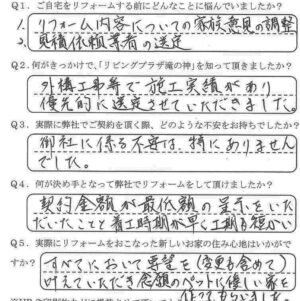 Q1. ご自宅をリフォームする前にどんなことに悩んでいましたか?
1. リフォーム内容についての家族意見の調整
2. 見積依頼業者の選定
Q2. 何がきっかけで、「リビングプラザ滝の神」を知って頂きましたか?
外構工事等で施工実績があり
優先的に選定させていただきました。
Q3. 実際に弊社でご契約を頂く際、どのような不安をお持ちでしたか?
御社に係る不安は、特にありません
でした。
Q4. 何が決め手となって弊社でリフォームをして頂けましたか?
契約金額が最低額の呈示をいた
だいたことと着工時期が早く工期も短かい
Q5. 実際にリフォームをおこなった新しいお家の住み心地はいかがで
すか? すべてにおいて要望を(変更も含めて)
叶えていただき念願のペットに優しい家を